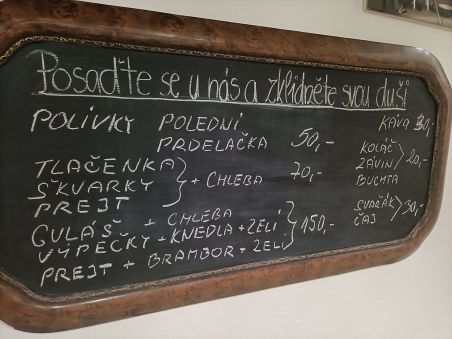 Posaďte se u nás a zklidněte svou duši
POLÍVKY POLEDNÍ
PRDELAČKA 50,-
TLAČENKA
ŠKVARKY + CHLEBA 70,-
PREJT
GULÁŠ + CHLEBA
VÝPEČKY + KNEDLA + ZELÍ 150,-
PREJT + BRAMBOR + ZELÍ
KÁVA 30,-
KOLÁČ
ZÁVIN 20,-
BUCHTA
SVAŘÁK 30,-
ČAJ